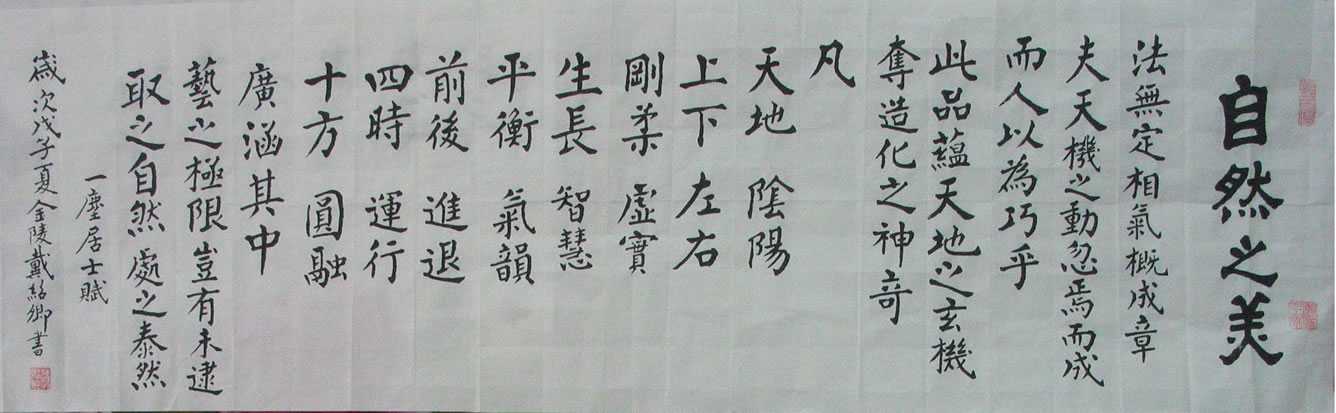 自然之美
法無定相氣概成章
夫天機之動忽焉而成
而人以為巧乎
此品蘊天地之玄機
奪造化之神奇
凡
天地 陰陽
上下 左右
剛柔 虛實
生長 智慧
平衡 氣韻
前後 進退
四時 運行
十方 圓融
廣涵其中
藝之極限豈有未逮
取之自然處之泰然
一塵居士賦
歲次戊子夏金陵戴紹卿書